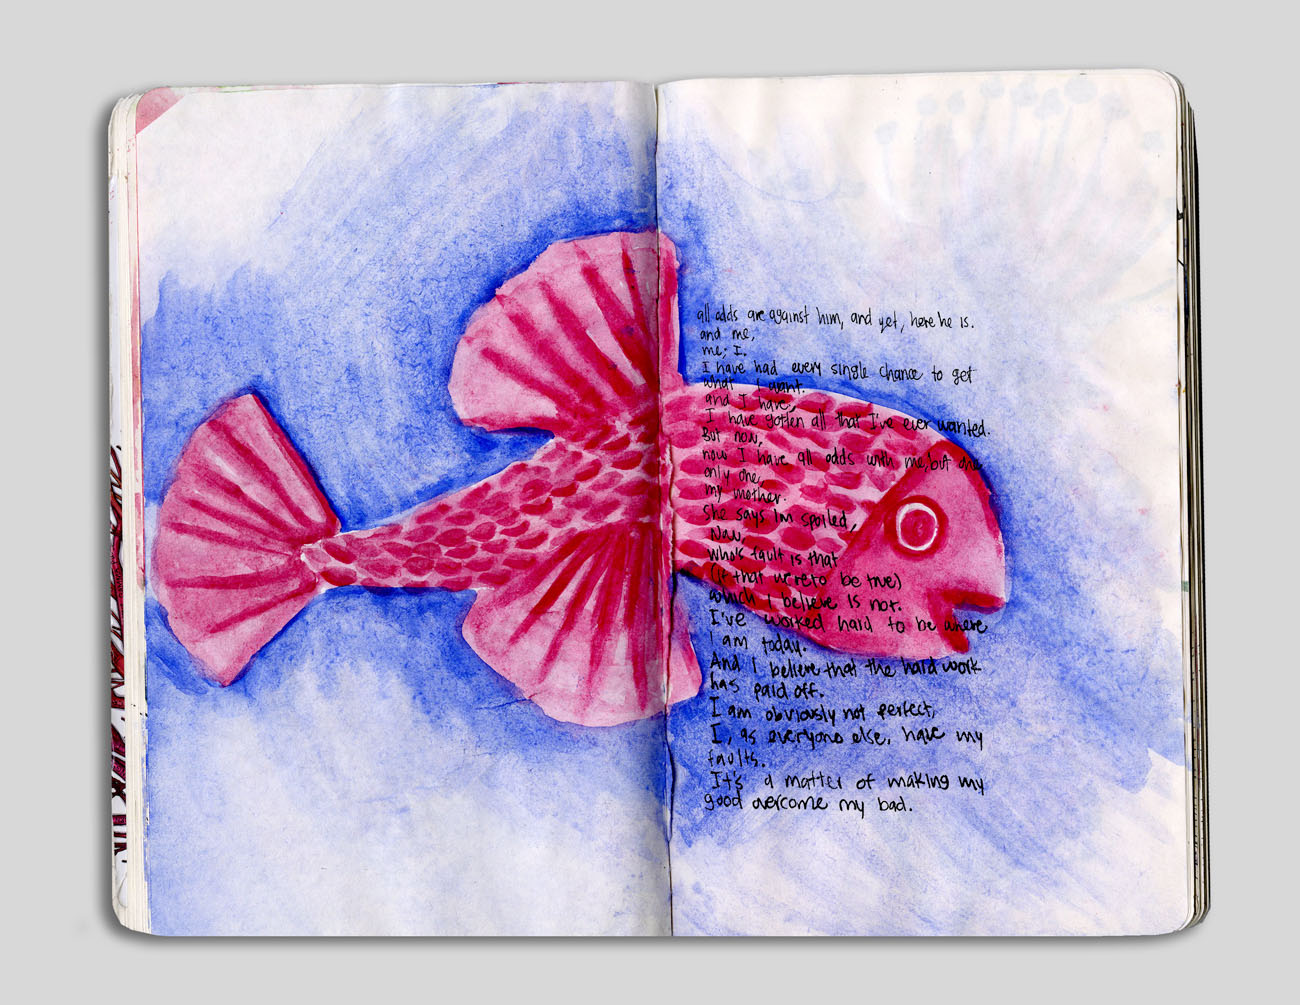 all odds are against him, and yet, here he is.
and me,
me; I.
I have had every single chance to get
what I want.
and I have,
I have gotten all that I've ever wanted.
But now,
now I have all odds with me, but one
only one,
my mother.
She says Im spoiled,
Now,
who's fault is that
(if that were to be true)
which I believe is not.
I've worked hard to be where
I am today.
And I believe that the hard work
has paid off.
I am obviously not perfect,
I, as everyone else, have my
faults.
It's a matter of making my
good overcome my bad.